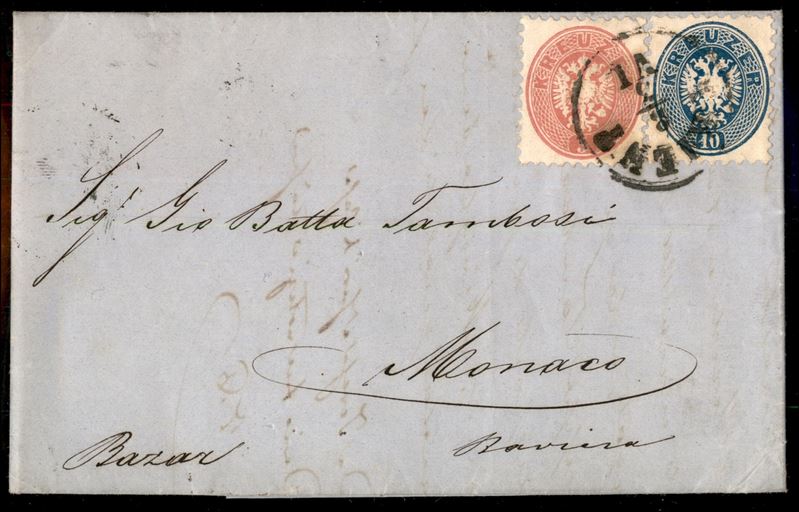 KREUZER KREUZER
10
Sigr Gio Batta Tambosi
Monaco
Bazar Baviera